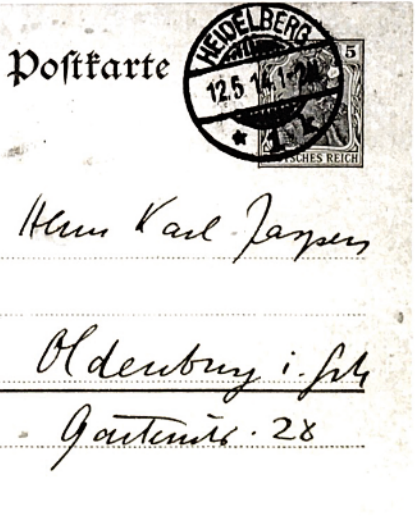 Postkarte
HEIDELBERG
5
12.5 14.1-2N
* 1. k
DEUTSCHES REICH
Herrn Karl Jaspers
Oldenburg i. Grh
Gartenstr. 28